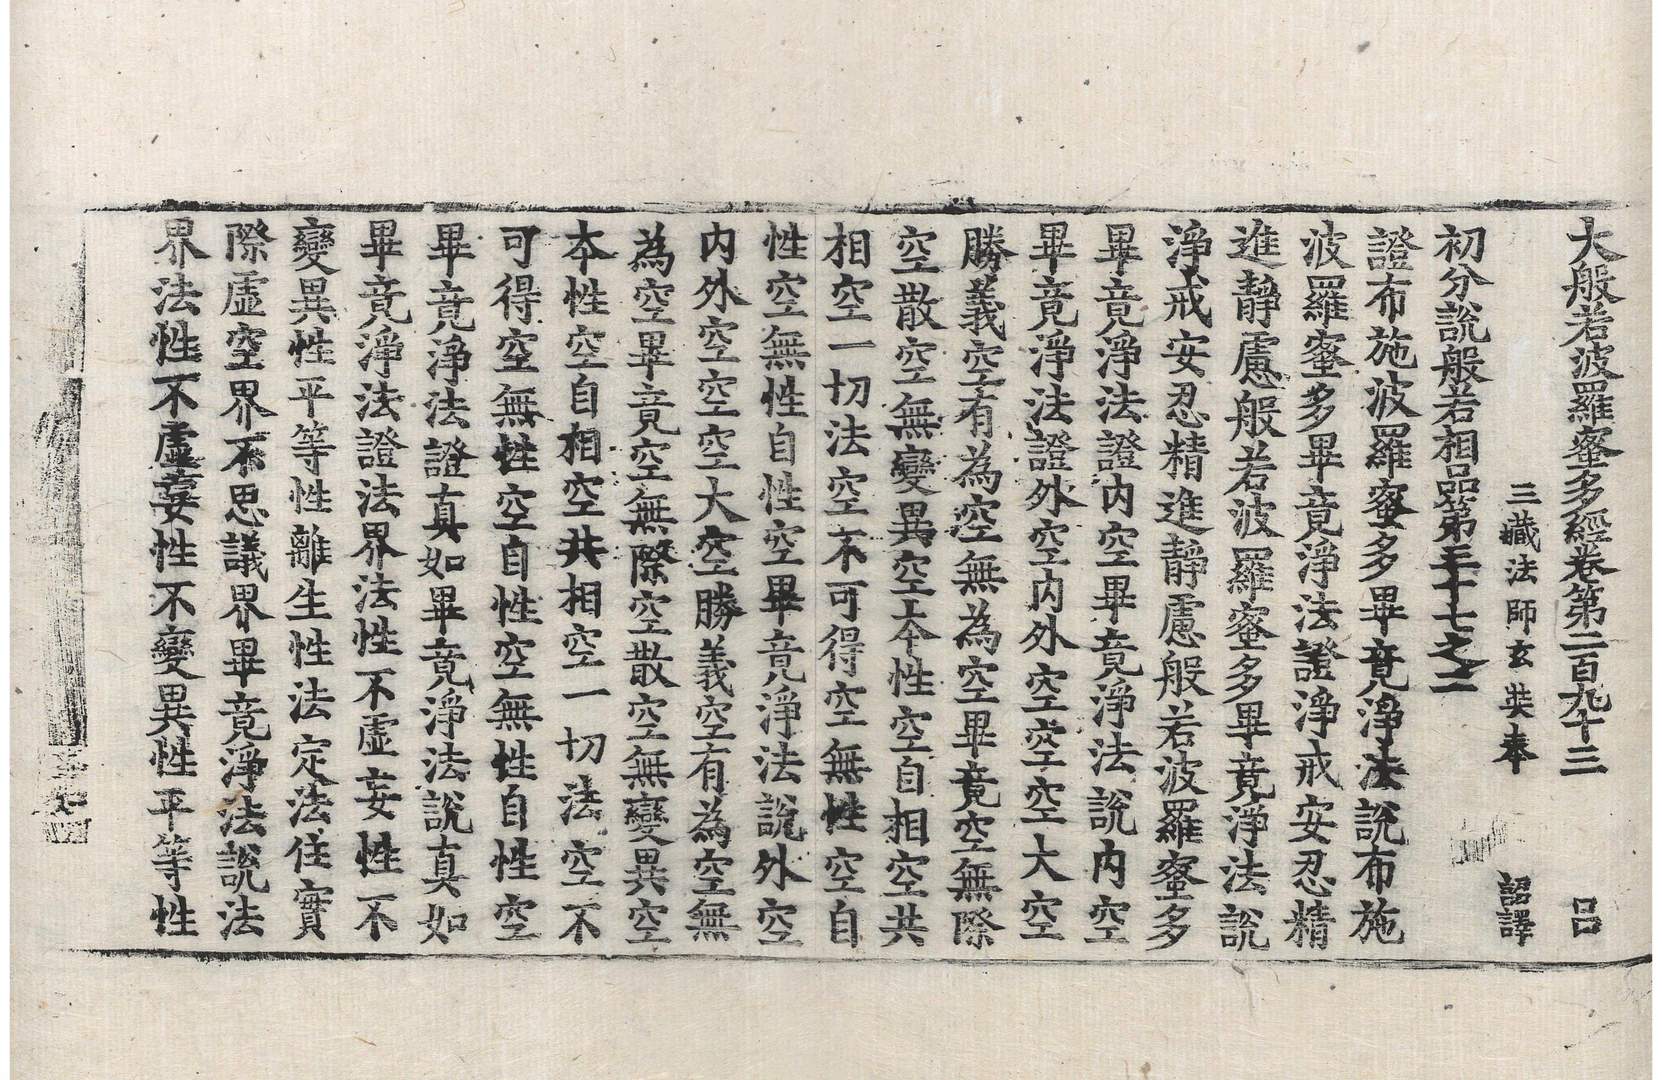 大般若波羅蜜多經卷第二百九十三 呂
三藏法師玄奘奉 詔譯
初分說般若相品第三十七之二
證布施波羅蜜多畢竟淨法說布施
波羅蜜多畢竟淨法證淨戒安忍精
進靜慮般若波羅蜜多畢竟淨法說
淨戒安忍精進靜慮般若波羅蜜多
畢竟淨法證内空畢竟淨法說内空
畢竟淨法證外空内外空空空大空
勝義空有為空無為空畢竟空無際
空散空無變異空本性空自相空共
相空一切法空不可得空無性空自
性空無性自性空畢竟淨法說外空
内外空空空大空勝義空有為空無
為空畢竟空無際空散空無變異空
本性空自相空共相空一切法空不
可得空無性空自性空無性自性空
畢竟淨法證真如畢竟淨法說真如
畢竟淨法證法界法性不虛妄性不
變異性平等性離生性法定法住實
際虛空界不思議界畢竟淨法說法
界法性不虛妄性不變異性平等性